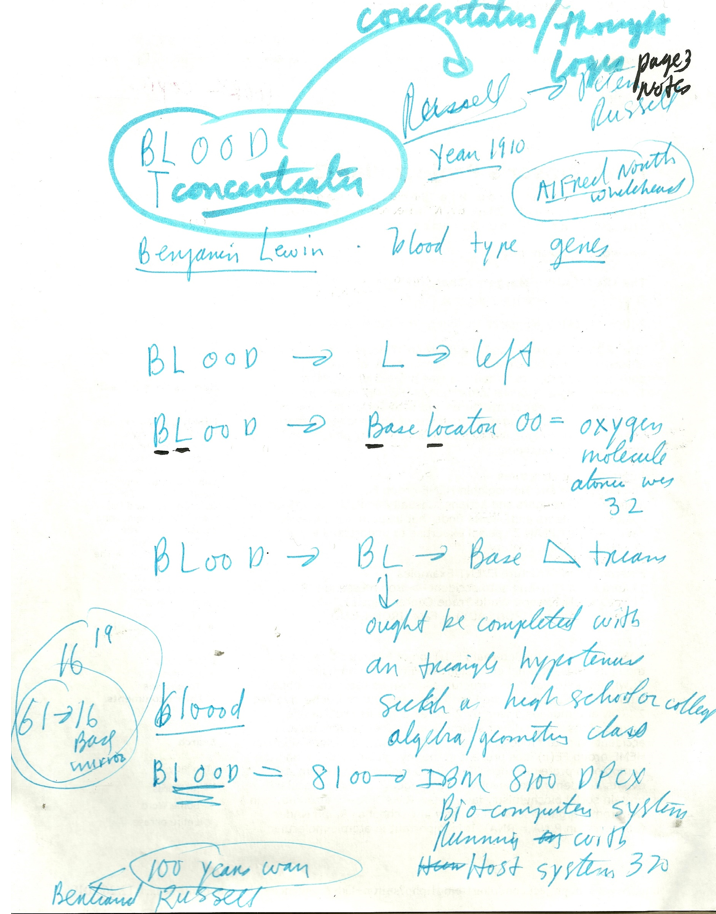 concentates / thought
Logic page 3
notes
Russell → Peter
Russell
Year 1910
BLOOD
T concentrates
Alfred North
whitehead
Benjamin Lewin . blood type genes
BLOOD → L → left
BLOOD → Base Location OO = oxygen
molecule
atomic
32
BLOOD → BL → Base
ought be completed with
an triangle hypotenus
a high school or college
algebra/geometry class
16 19
61 → 16
Base
mirror
blood
BLOOD = 8100 → IBM 8100 DPCX
Bio-computers system
Running with
Host system 370
100 years war
Bertrand Russell